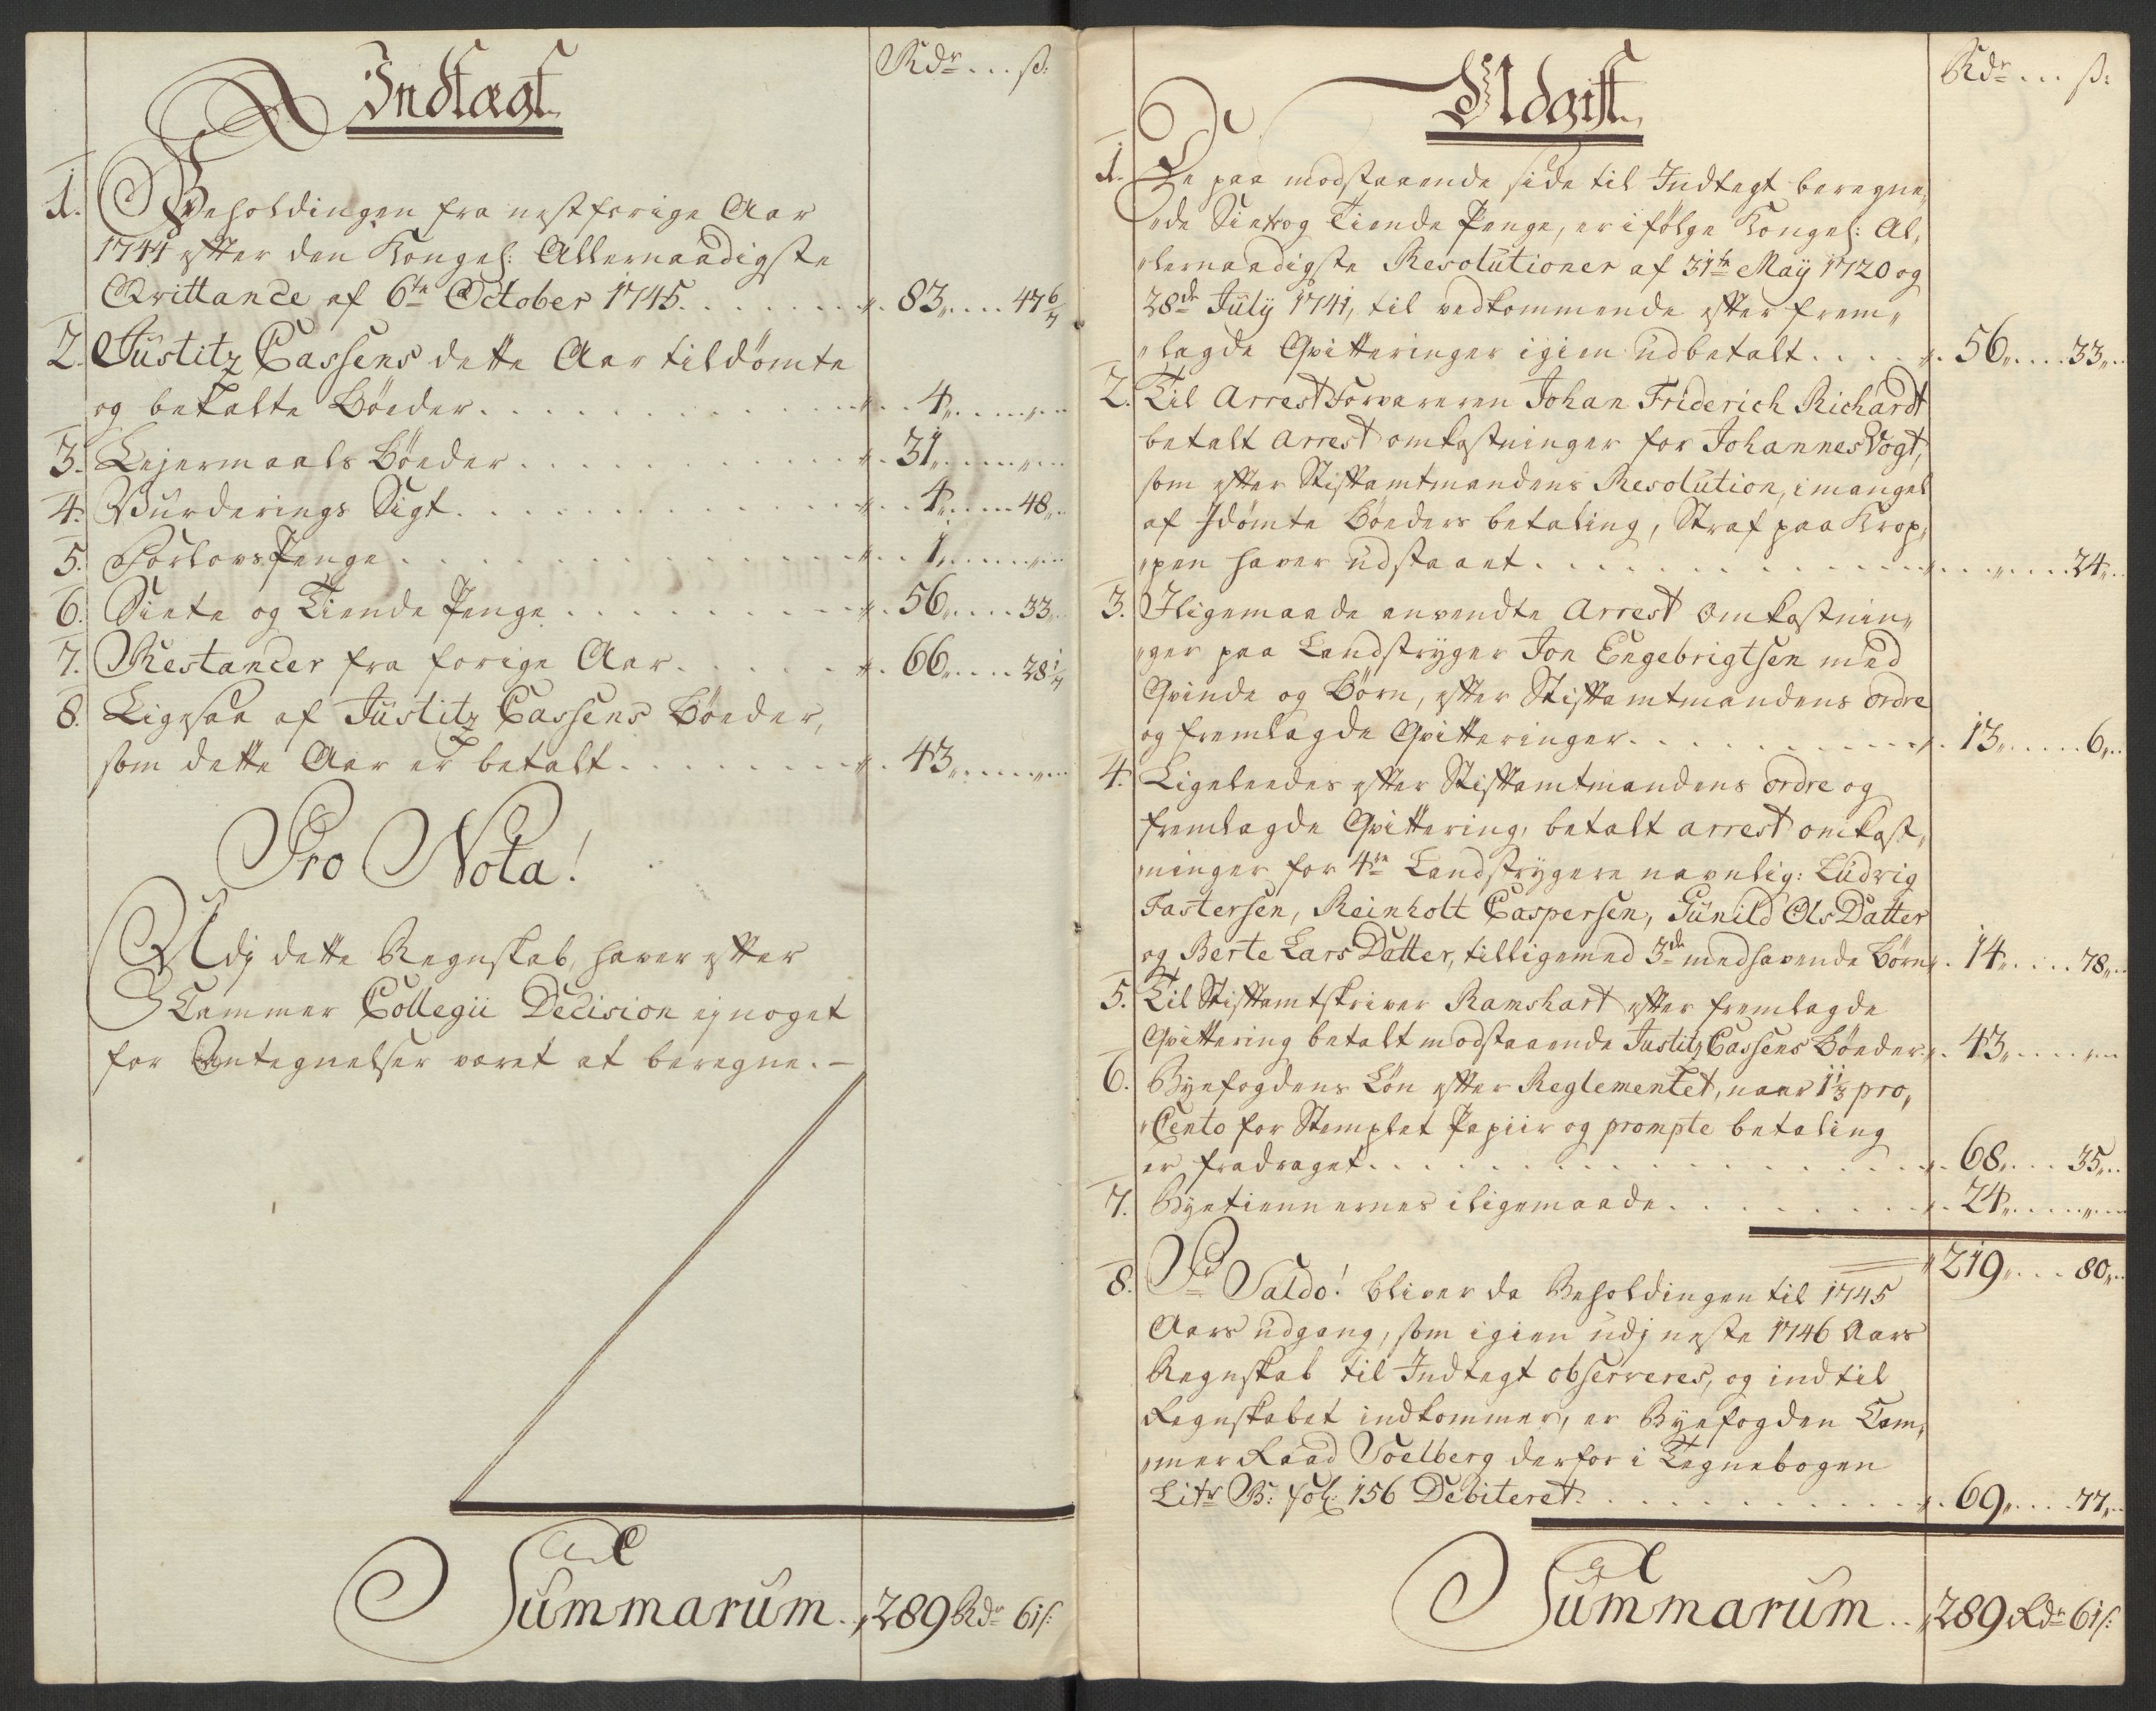 Indtægt
Rdr ... ß:
1. Beholdingen fra nestforige Aar
1744 efter den Kongel: Allernaadigste
Qvittance af 6te October 1745. . . . . . . „. 83„. . . . 47 6/7
2. Justitz Cassens dette Aar tildømte
og betalte Bøeder. . . . . . . . . . „. . 4„. . . . „. .
3. Lejermaals Bøeder. . . . . . . . . „. 31„. . . . „. .
4. Vurderings Sigt. . . . . . . . . . „. . 4„. . . . 48„. .
5. Forlovs Penge . . . . . . . . . . „. . 1„. . . . „. .
6. Siette og Tiende Penge . . . . . . . „. 56„. . . . 33„. .
7. Restancer fra forige Aar. . . . . . „. 66„. . . . 28 1/7
8. Ligesaa af Justitz Cassens Bøeder,
som dette Aar er betalt. . . . . . . . „. 43„. . . . „. .
Pro Nota!
Udj dette Regnskab, haver efter
Cammer Collegii Decision ej noget
for Antegnelser været at beregne. –
Summarum. . „289 Rdr 61ß:
Udgift
Rdr ... ß:
1. De paa modstaaende side til Indtegt beregne„
„de Siette og Tiende Penge, er i følge Kongel: Al„
„lernaadigste Resolutioner af 31te Maÿ 1720 og
28de Julÿ 1741, til vedkommende efter frem„
„lagde Qvitteringer igien udbetalt. . . . „. 56„. . . . 33„. .
2. Til Arrest Forvareren Johan Friderich Richardt
betalt Arrest omkostninger for Johannes Vogt,
som efter Stiftamtmandens Resolution, i mangel
af Idømte Bøeders betaling, Straf paa Krop„
„pen haver udstaaet. . . . . . . . . . . „. . . „. . . . 24„. .
3. Iligemaade anvendte Arrest Omkostnin„
„ger paa Landstryger Jon Engebrigtsen med
Qvinde og Børn, efter Stiftamtmandens ordre
og fremlagde Qvitteringer. . . . . . . . „. 13„. . . . 6„. .
4. Ligeleedes efter Stiftamtmandens ordre og
fremlagde Qvittering, betalt arrest omkost„
„ninger for 4re Landstrygere navnlig: Ludvig
Fastersen, Reinholt Caspersen, Gunild Ols Datter
og Berte Lars Datter, tilligemed 3de medhavende Børn „. 14„. . . . 78„. .
5. Til Stiftamtskriver Ramshart efter fremlagde
Qvittering betalt modstaaende Justitz Cassens Bøeder „. 43„. . . . „. .
6. Byefogdens Løn efter Reglementet, naar 1 1/3 pro„
„Cento for Stemplet Papiir og prompte betaling
er fradraget. . . . . . . . . . . . . „. 68„. . . . 35„. .
7. Byetiennernes iligemaade. . . . . . . „. 24„. . . . „. .
„219„. . . 80„. .
8. Pr Saldo! bliver da Beholdingen til 1745
Aars udgang, som igien udj neste 1746 Aars
Regnskab til Indtegt observeres, og indtil
Regnskabet indkommer, er Byefogden Cam„
„mer Raad Soelberg derfor i Tegnebogen
Litr B: fol: 156 Debiteret. . . . . . . . „. 69„. . . . 77„. .
Summarum. . „289 Rdr 61ß: